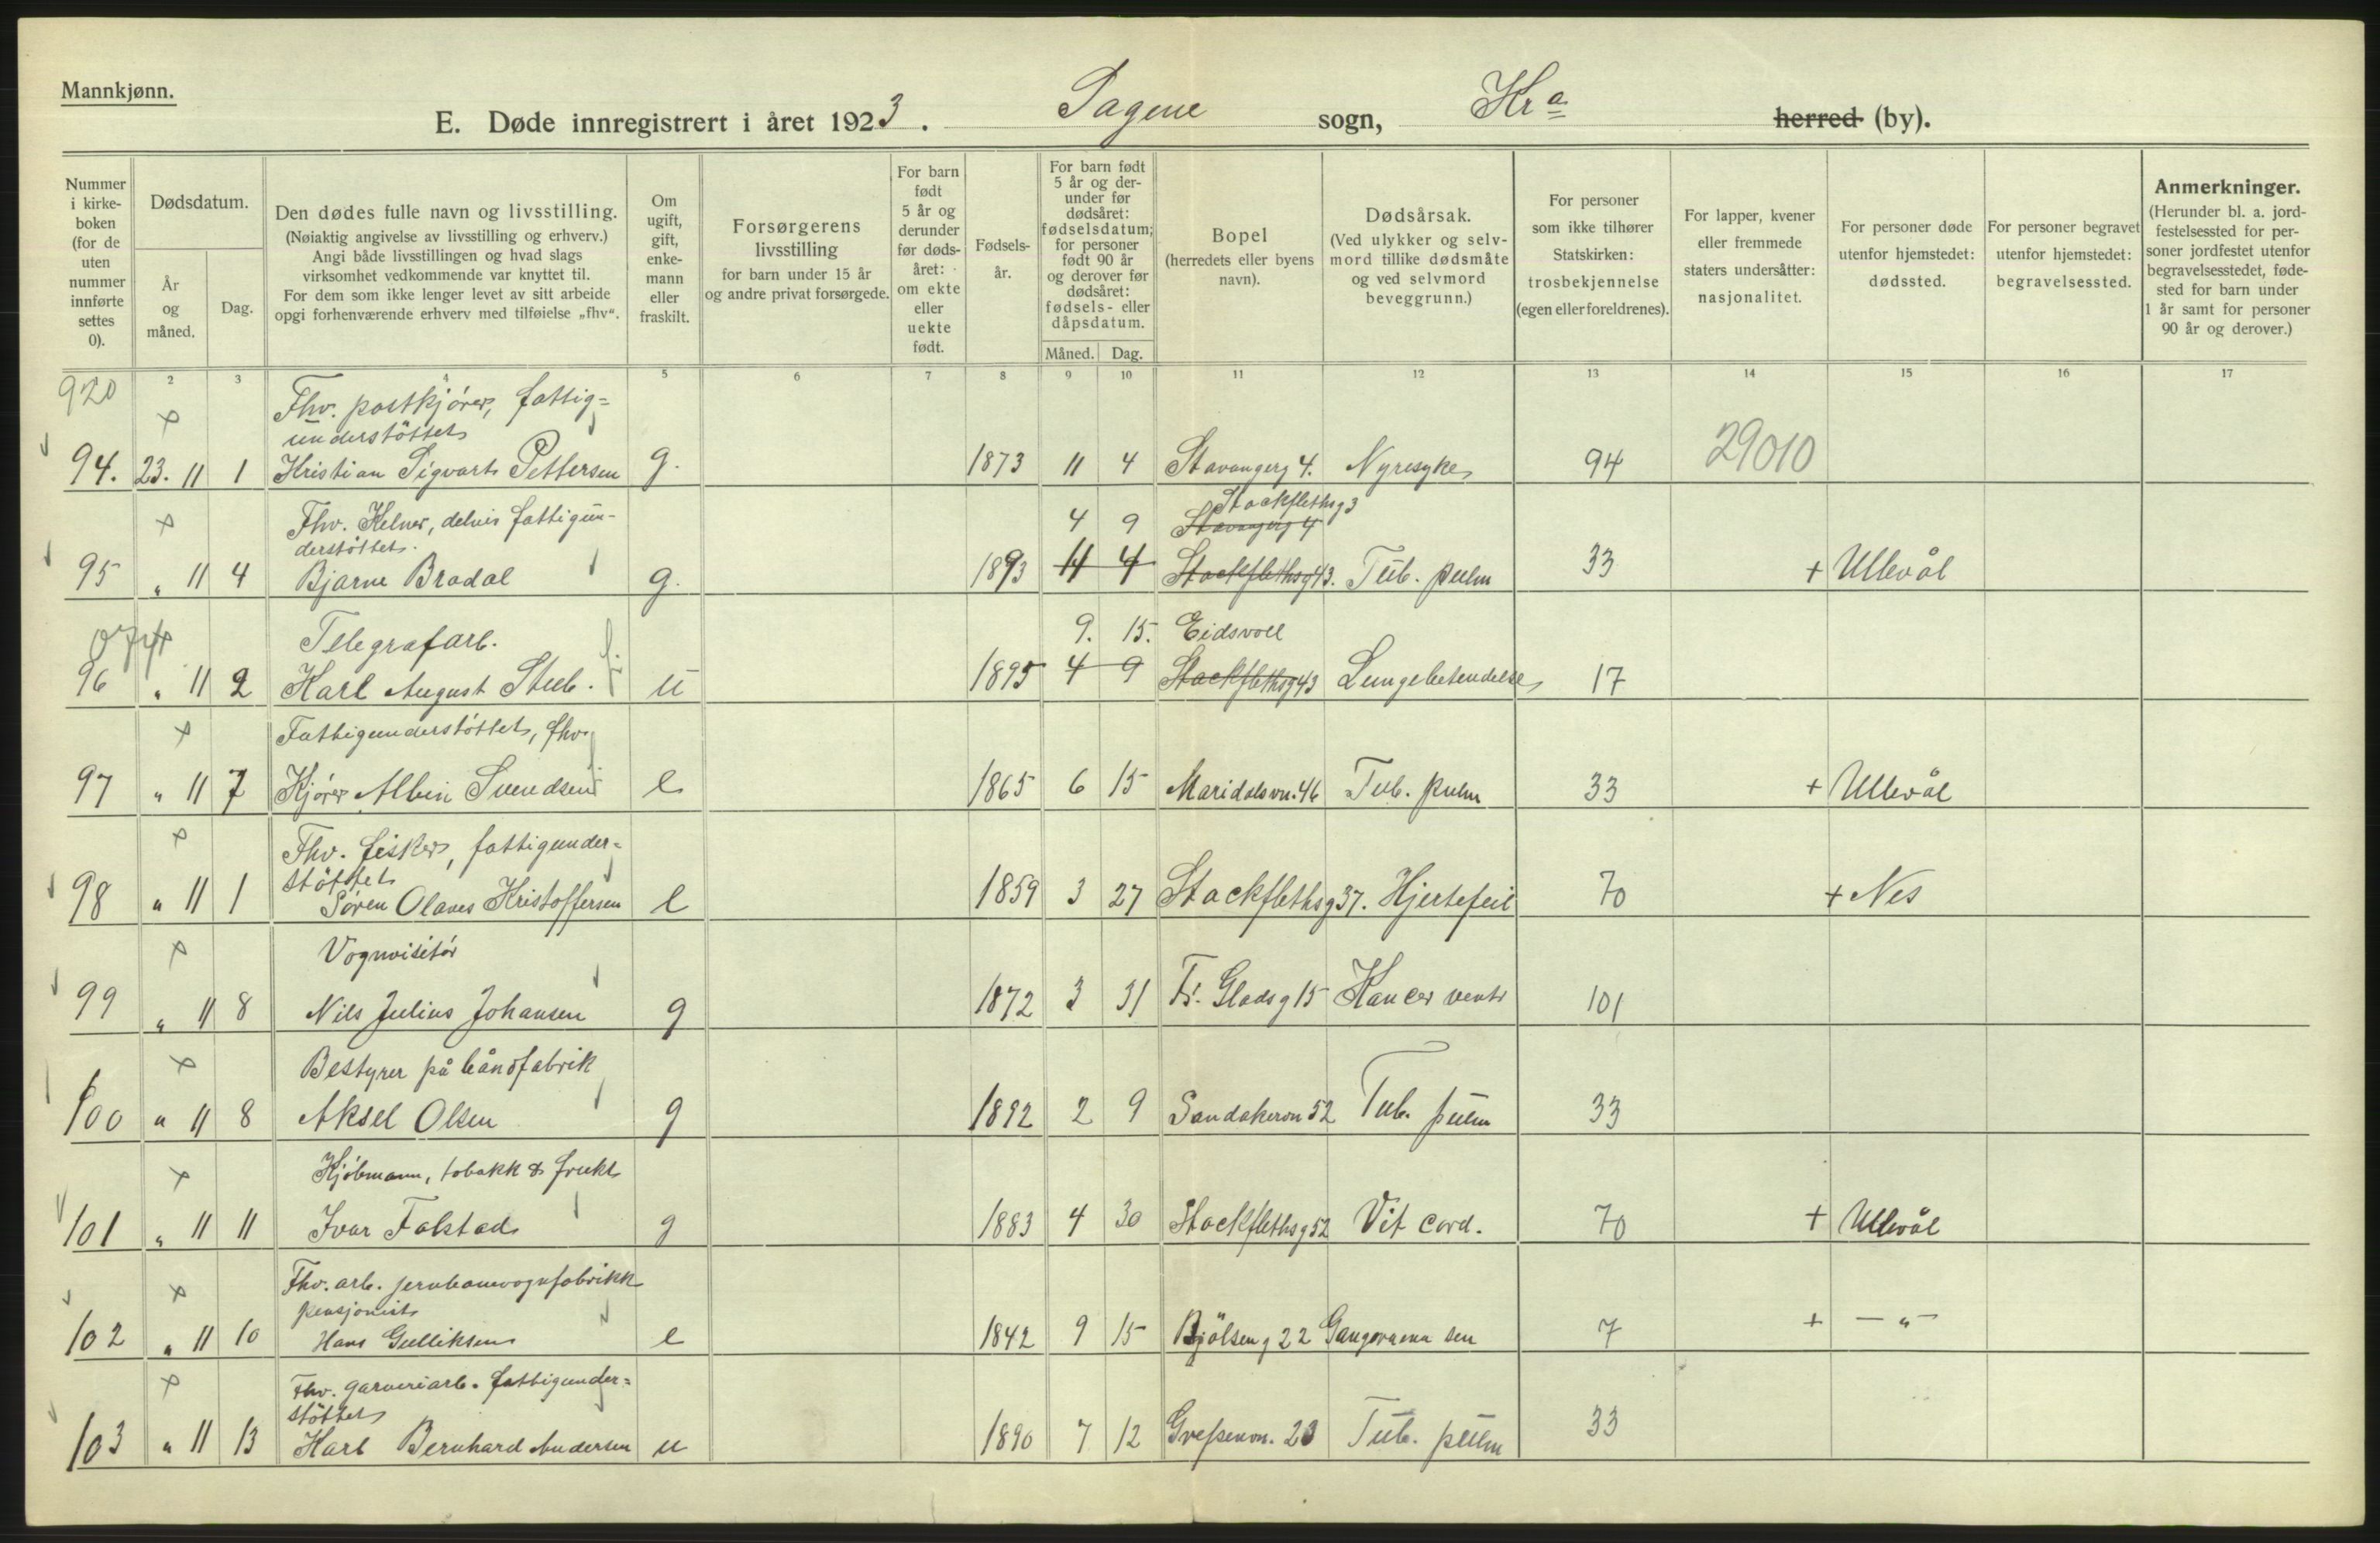 Mannkjønn.
E. Døde innregistrert i året 1923. Sagene sogn, Kra herred (by).
Nummer i kirke-boken (for de uten nummer innførte settes 0).
Dødsdatum.
År og måned.
Dag.
Den dødes fulle navn og livsstilling.
(Nøiaktig angivelse av livsstilling og erhverv.)
Angi både livsstillingen og hvad slags
virksomhet vedkommende var knyttet til.
For dem som ikke lenger levet av sitt arbeide
opgi forhenværende erhverv med tilføielse „fhv“.
Om ugift, gift, enke-mann eller fraskilt.
Forsørgerens livsstilling
for barn under 15 år
og andre privat forsørgede.
For barn født 5 år og derunder før døds-året: om ekte eller uekte født.
Fødsels-år.
For barn født 5 år og der-under før dødsåret: fødselsdatum; for personer født 90 år og derover før dødsåret: fødsels- eller dåpsdatum.
Måned. Dag.
Bopel
(herredets eller byens navn).
Dødsårsak.
(Ved ulykker og selv-mord tillike dødsmåte og ved selvmord beveggrunn.)
For personer som ikke tilhører Statskirken: trosbekjennelse (egen eller foreldrenes).
For lapper, kvener eller fremmede staters undersåtter: nasjonalitet.
For personer døde utenfor hjemstedet: dødssted.
For personer begravet utenfor hjemstedet: begravelsessted.
Anmerkninger.
(Herunder bl. a. jord-festelsessted for per-soner jordfestet utenfor begravelsesstedet, føde-sted for barn under 1 år samt for personer 90 år og derover.)
2 3 4 5 6 7 8 9 10 11 12 13 14 15 16 17
920
Fhv. postkjører, fattig=
understöttet
94. 23. 11 1 Kristian Sigvart Pettersen g. 1873 11 4 Stavangerg 4. Nyresyke 94 29010
Fhv. Kelner, delvis fattigun-
derstöttet.
4 9 Stockflethsg 3
Stavangerg 4
95 „ 11 4 Bjarne Bradal g. 1893 11 4 Stockflethsg 43. Tub. pulm 33 + Ullevål
Telegrafarb. 9. 15. Eidsvoll
96 „ 11 2 Karl August Stub. u 1895 4 9 Stockflethsg 43 Lungebetendelse 17
Fattigunderstöttet, fhv.
97 „ 11 7 Kjører Albin Svendsen e 1865 6 15 Maridalsvn. 46 Tub. pulm 33 + Ullevål
Fhv. fisker, fattigunder=
stöttet
98 „ 11 1 Sören Olaves Kristoffersen e 1859 3 27 Stockflethsg 37. Hjertefeil 70 + Nes
Vognvisitör
99 „ 11 8 Nils Julius Johansen g 1872 3 31 Fr. Gladsg 15 Kancer ventr 101
Bestyrer på båndfabrik
100 „ 11 8 Aksel Olsen g 1892 2 9 Sandakervn 52 Tub. pulm 33
Kjöbmann, tobakk & frukt
101 „ 11 11 Ivar Falstad g 1883 4 30 Stockflethsg 52 Vit cord. 70 + Ullevål
Fhv. arb. jernbanevognfabrikk
pensjonist
102 „ 11 10 Hans Gulliksen e 1842 9 15 Bjölseng 22 Gangraena sen 7 + — „ —
Fhv. garveriarb. fattigunder=
stöttet
103 „ 11 13 Karl Bernhard Andersen u 1890 7 12 Grefsenvn. 23 Tub. pulm 33